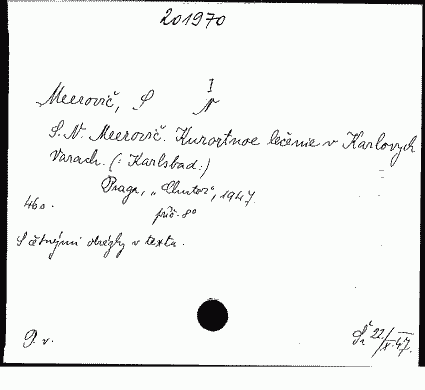 201970
I
Meerovič, S N
S. N. Meerovič. Kurortnoe lečenie v Karlovych
Varach. (: Karlsbad :)
Praga, „Orbis“, 1947.
46 s. 8°
S četnými obrázky v textu.
22/X. 47.